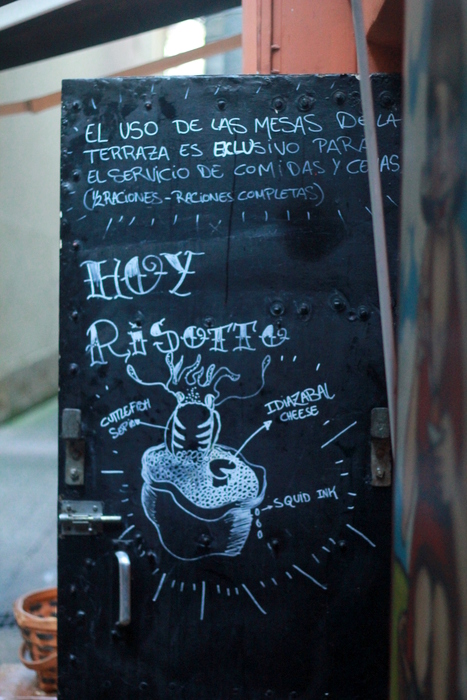 EL USO DE LAS MESAS DE LA
TERRAZA ES EXCLUSIVO PARA
EL SERVICIO DE COMIDAS Y CENAS
(½ RACIONES - RACIONES COMPLETAS)
HOY
RISOTTO
CUTTLEFISH
SEPIA
IDIAZABAL
CHEESE
SQUID INK